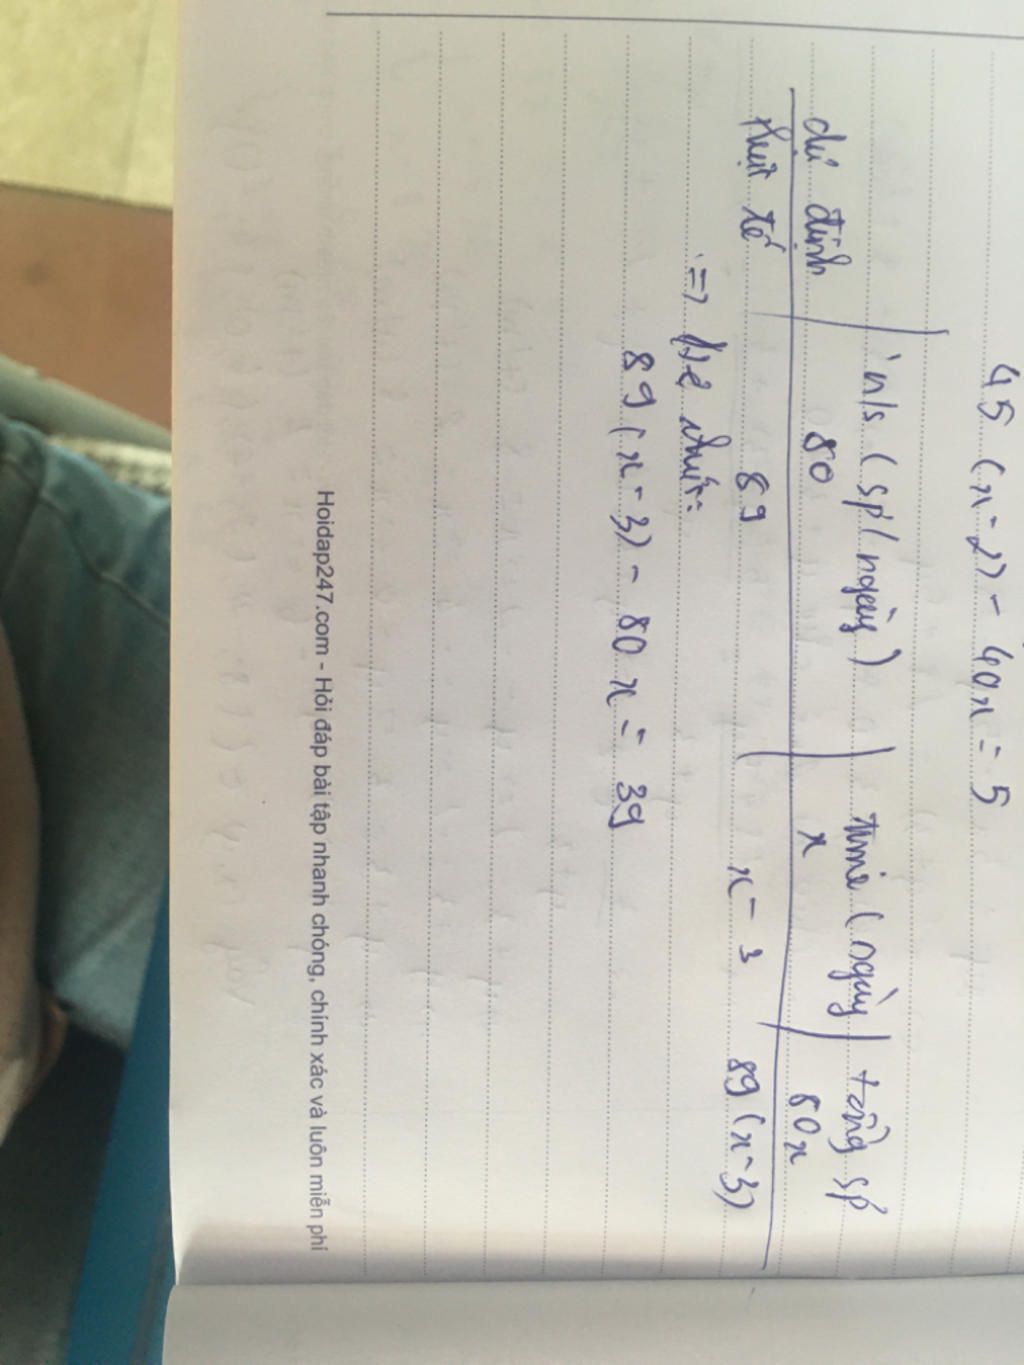 45 (x-2) - 40x = 5
n/s (sp/ngày) time (ngày) tổng sp
dự định 80 x 80x
thực tế 89 x-3 89(x-3)
=>
89(x-3) - 80x = 39
Hoidap247.com - Hỏi đáp bài tập nhanh chóng, chính xác và luôn miễn phí